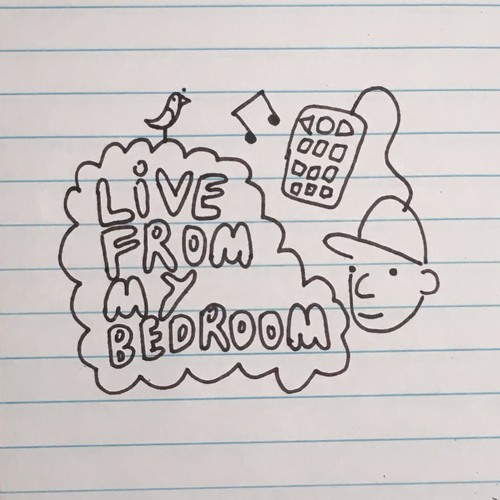 LiVE
FROM
MY
BEDROOM